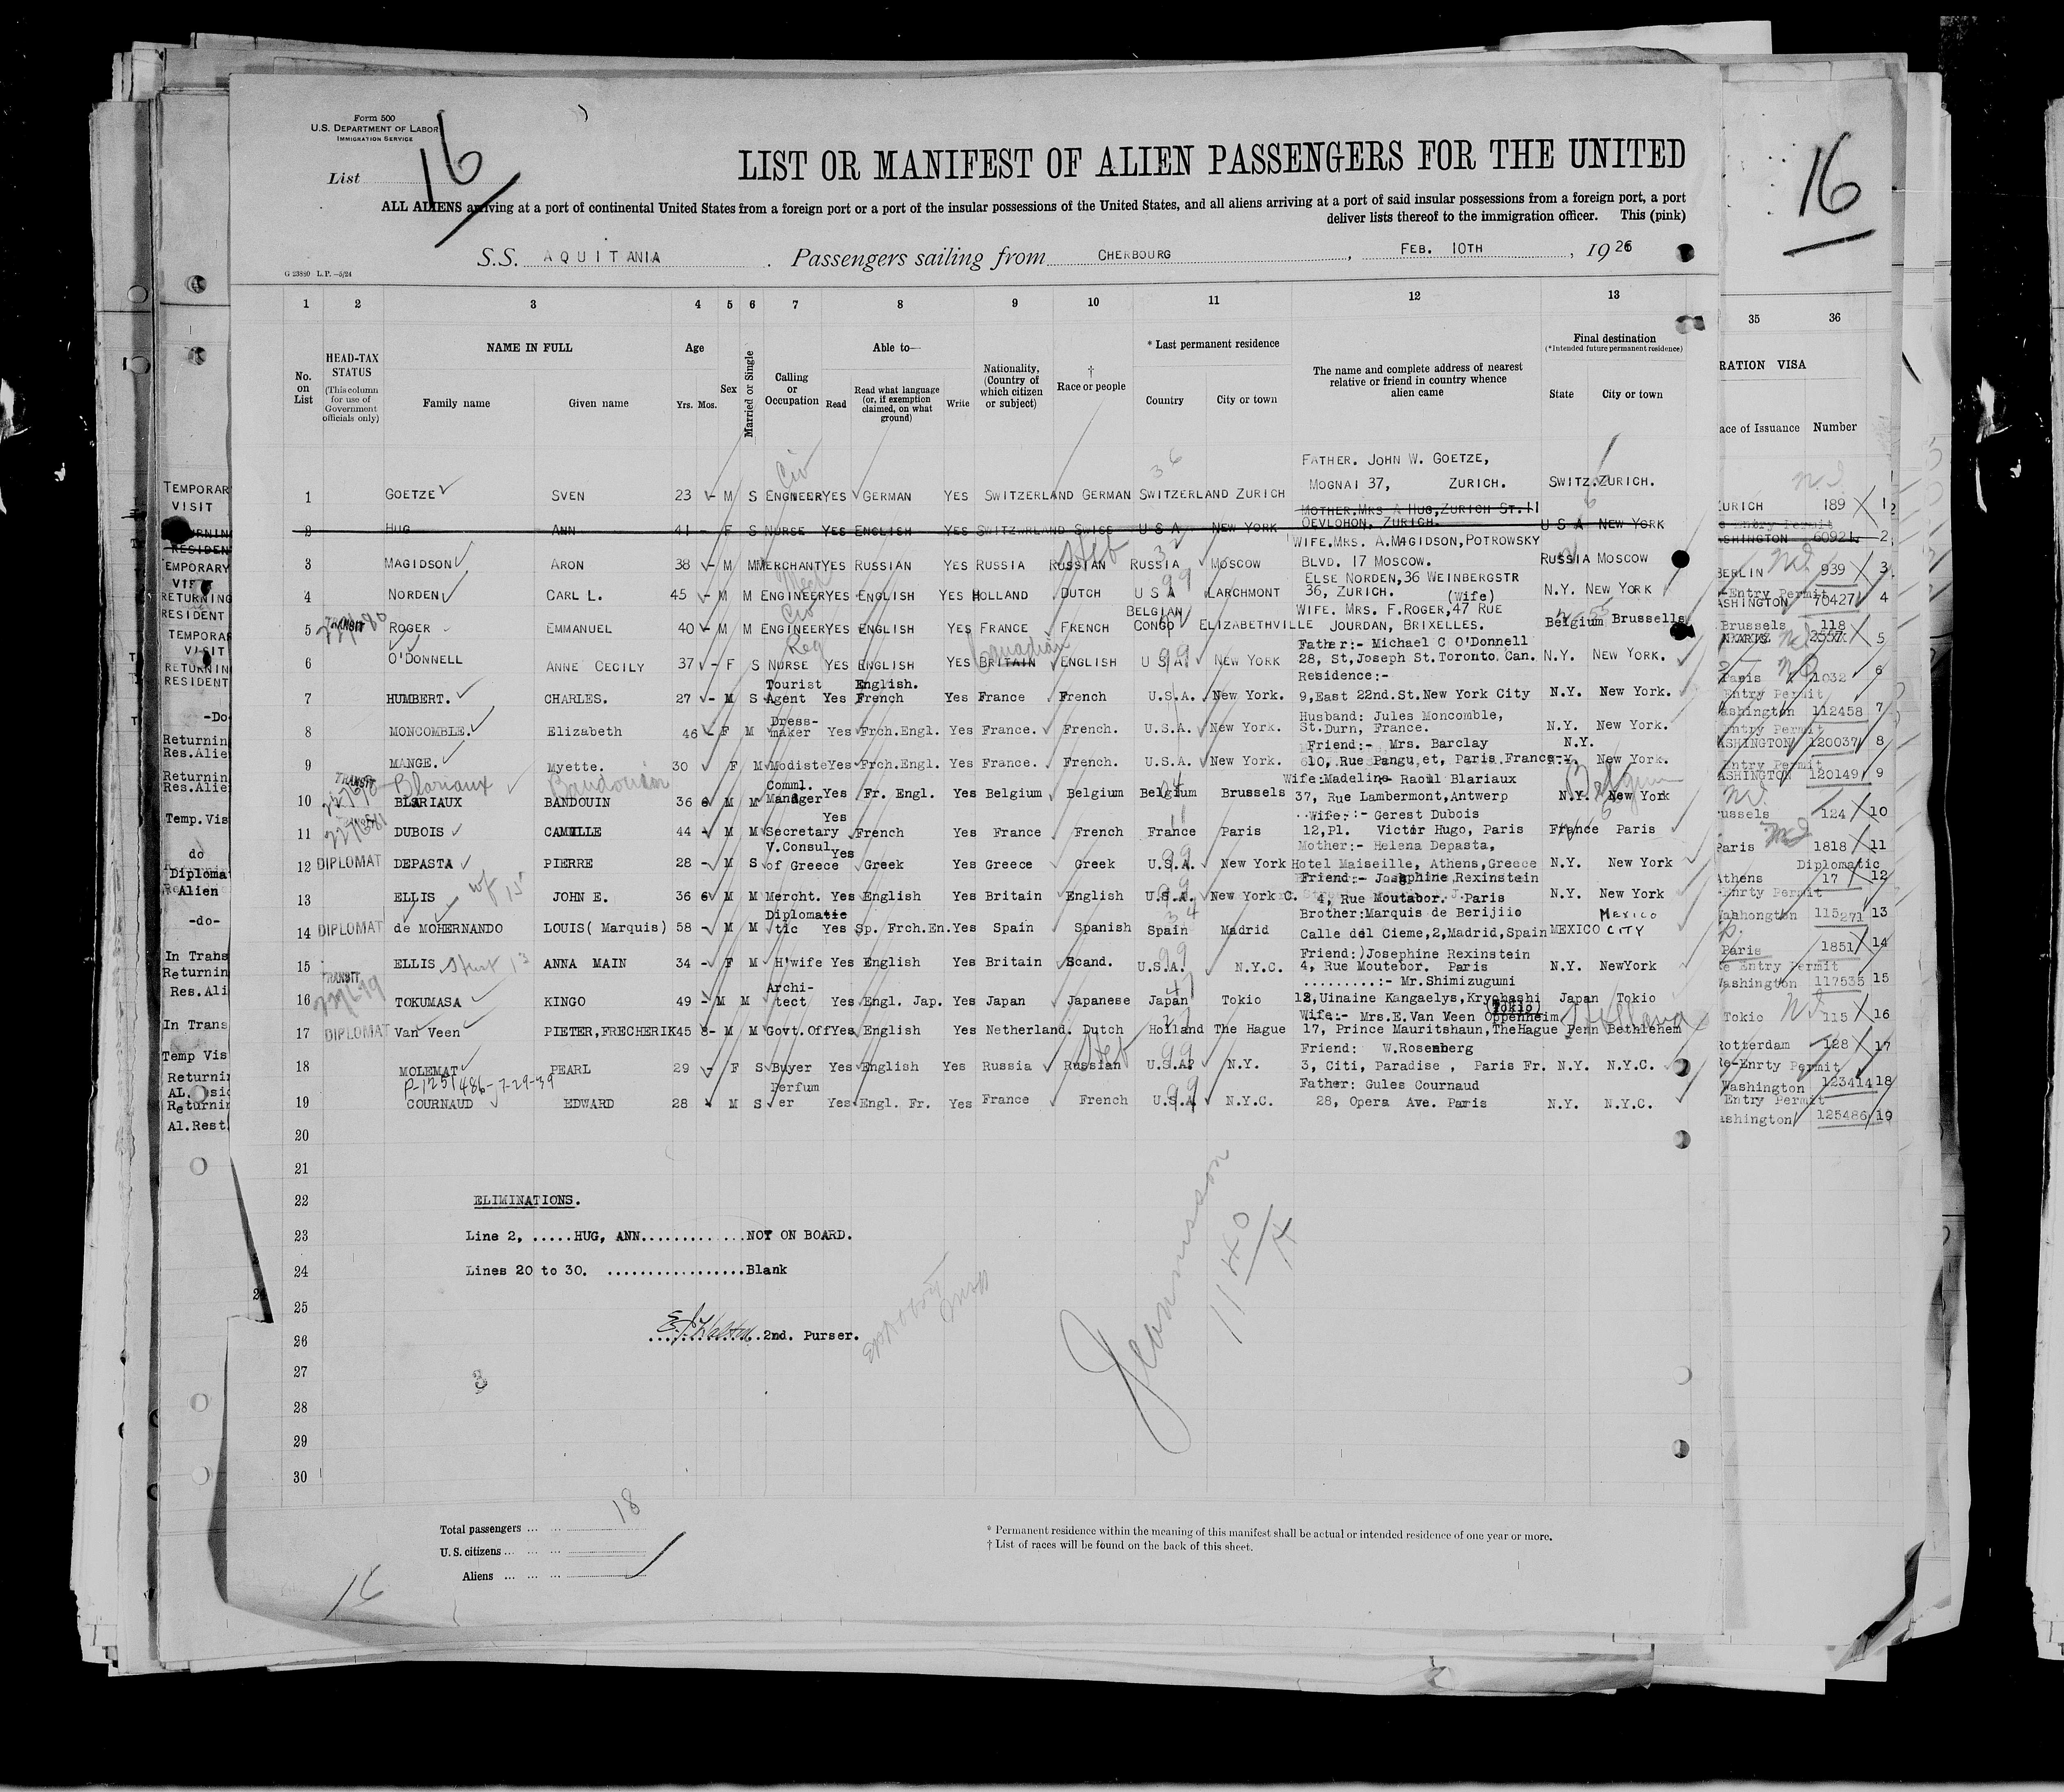 Form 500
U.S. DEPARTMENT OF LABOR
IMMIGRATION SERVICE
List 16
16
LIST OR MANIFEST OF ALIEN PASSENGERS FOR THE UNITED
ALL ALIENS arriving at a port of continental United States from a foreign port or a port of the insular possessions of the United States, and all aliens arriving at a port of said insular possessions from a foreign port, a port
deliver lists thereof to the immigration officer. This (pink)
S.S. AQUITANIA. Passengers sailing from CHERBOURG, FEB. 10TH, 1926
G 23880 L.P.—5/24
1 2 3 4 5 6 7 8 9 10 11 12 13 35 36
No. on List
HEAD-TAX STATUS (This column for use of Government officials only)
NAME IN FULL
Family name Given name
Age
Yrs. Mos.
Sex
Married or Single
Calling or Occupation
Able to—
Read Read what language (or, if exemption claimed, on what ground) Write
Nationality, (Country of which citizen or subject)
† Race or people
* Last permanent residence
Country City or town
The name and complete address of nearest relative or friend in country whence alien came
Final destination
(*Intended future permanent residence)
State City or town
RATION VISA
ace of Issuance Number
FATHER. JOHN W. GOETZE,
TEMPORAR VISIT 1 GOETZE SVEN 23 - M S Civ ENGINEER YES GERMAN YES SWITZERLAND GERMAN SWITZERLAND ZURICH MOGNAI 37, ZURICH. SWITZ. ZURICH. ZURICH 189 1
MOTHER.MRS A HUG,ZURICH ST.11
2 HUG ANN 41 - F S NURSE YES ENGLISH YES SWITZERLAND SWISS U S A NEW YORK OEVLOHON, ZURICH. U S A NEW YORK ASHINGTON 60921 2
WIFE.MRS. A.MAGIDSON,POTROWSKY
EMPORARY VISIT 3 MAGIDSON ARON 38 - M M MERCHANT YES RUSSIAN YES RUSSIA RUSSIAN Heb RUSSIA MOSCOW BLVD. 17 MOSCOW. RUSSIA MOSCOW BERLIN 939 3
ELSE NORDEN,36 WEINBERGSTR
RETURNING RESIDENT 4 NORDEN CARL L. 45 - M M Mech ENGINEER YES ENGLISH YES HOLLAND DUTCH U S A LARCHMONT 36, ZURICH. (Wife) N.Y. NEW YORK Entry Permit ASHINGTON 70427 4
WIFE. MRS. F.ROGER,47 RUE
TEMPORA VISIT TRANSIT 5 ROGER EMMANUEL 40 - M M Civ ENGINEER YES ENGLISH YES FRANCE FRENCH BELGIAN CONGO ELIZABETHVILLE JOURDAN, BRIXELLES. Belgium Brussells Brussels 118 5
Father:- Michael C O'Donnell
RETURNIN RESIDENT 6 O'DONNELL ANNE CECILY 37 - F S Reg NURSE YES ENGLISH YES BRITAIN Canadian ENGLISH U S A. NEW YORK 28, St,Joseph St.Toronto. Can. N.Y. NEW YORK. Paris 1032 6
Residence:-
-Do 7 HUMBERT. CHARLES. 27 - M S Tourist Agent Yes English. French Yes France French U.S.A. New York. 9,East 22nd.St.New York City N.Y. New York. Entry Permit ashington 112458 7
Husband: Jules Moncomble,
Returnin Res.Alie 8 MONCOMBLE. Elizabeth 46 - F M Dress-maker Yes Frch.Engl. Yes France. French. U.S.A. New York. St.Durn, France. N.Y. New York. Entry Permit ASHINGTON 120037 8
Friend:- Mrs. Barclay N.Y.
Returnin Res.Alie 9 MANGE. Myette. 30 F M Modiste Yes Frch.Engl. Yes France. French. U.S.A. New York. 610, Rue Pangu,et, Paris France. N.Y. New York. Entry Permit ASHINGTON 120149 9
Blariaux Baudouin Wife:Madeline Raoul Blariaux Belgium
Temp.Vis TRANSIT 10 BLARIAUX BANDOUIN 36 M M Comml. Manager Yes Fr. Engl. Yes Belgium Belgium Belgium Brussels 37, Rue Lambermont,Antwerp N.Y. New York russels 124 10
Wife:- Gerest Dubois
do 11 DUBOIS CAMILLE 44 - M M Secretary Yes French Yes France French France Paris 12,Pl. Victor Hugo, Paris France Paris Paris 1818 11
Mother:- Helena Depasta,
Diploma 12 DIPLOMAT DEPASTA PIERRE 28 - M S V.Consul of Greece Yes Greek Yes Greece Greek U.S.A. New York Hotel Maiseille, Athens,Greece N.Y. New York Diplomatic Athens 17 12
Friend:- Josephine Rexinstein
Alien 13 ELLIS wf 15 JOHN E. 36 6 M M Mercht. Yes English Yes Britain English U.S.A. New York C. 4, Rue Moutabor. Paris N.Y. New York Enrty Permit Wahhongton 115271 13
Brother:Marquis de Berijiio
-do- 14 DIPLOMAT de MOHERNANDO LOUIS( Marquis) 58 - M M Diplomatic Yes Sp. Frch.En. Yes Spain Spanish Spain Madrid Calle del Cieme,2,Madrid,Spain MEXICO MEXICO CITY Paris 1851 14
Friend:)Josephine Rexinstein
In Trans Returnin 15 ELLIS ANNA MAIN 34 - F M H'wife Yes English Yes Britain Scand. U.S.A. N.Y.C. 4, Rue Moutebor. Paris N.Y. NewYork Re Entry Permit Washington 117535 15
.........:- Mr.Shimizugumi
Res.Ali TRANSIT 16 TOKUMASA KINGO 49 - M M Archi-tect Yes Engl. Jap. Yes Japan Japanese Japan Tokio 12,Uinaine Kangaelys,Kryobashi (Tokio) Japan Tokio Tokio 115 16
Wife:- Mrs.E.Van Veen Oppenheim Holland
In Trans 17 DIPLOMAT Van Veen PIETER,FRECHERIK 45 8- M M Govt.Off Yes English Yes Netherland. Dutch Holland The Hague 17, Prince Mauritshaun,TheHague Penn Bethlehem Rotterdam 128 17
Friend: W.Rosenberg
Temp Vis 18 MOLEMAT PEARL 29 - F S Buyer Yes English Yes Russia Russian Heb U.S.A. N.Y. 3, Citi, Paradise , Paris Fr. N.Y. N.Y.C. Re-Enrty Permit Washington 123414 18
P-125486-7-29-39 Father: Gules Cournaud
Returnin Al.Rest 19 COURNAUD EDWARD 28 M S Perfumer Yes Engl. Fr. Yes France French U.S.A N.Y.C. 28, Opera Ave. Paris N.Y. N.Y.C. Entry Permit ashington 125486 19
20
21
22 ELIMINATIONS.
23 Line 2, .....HUG, ANN.............NOT ON BOARD.
24 Lines 20 to 30. .................Blank
25
26 2nd. Purser.
27
28
29
30
Jeannisson
1140
Total passengers ... 18
U.S. citizens ...
Aliens ...
* Permanent residence within the meaning of this manifest shall be actual or intended residence of one year or more.
† List of races will be found on the back of this sheet.
16